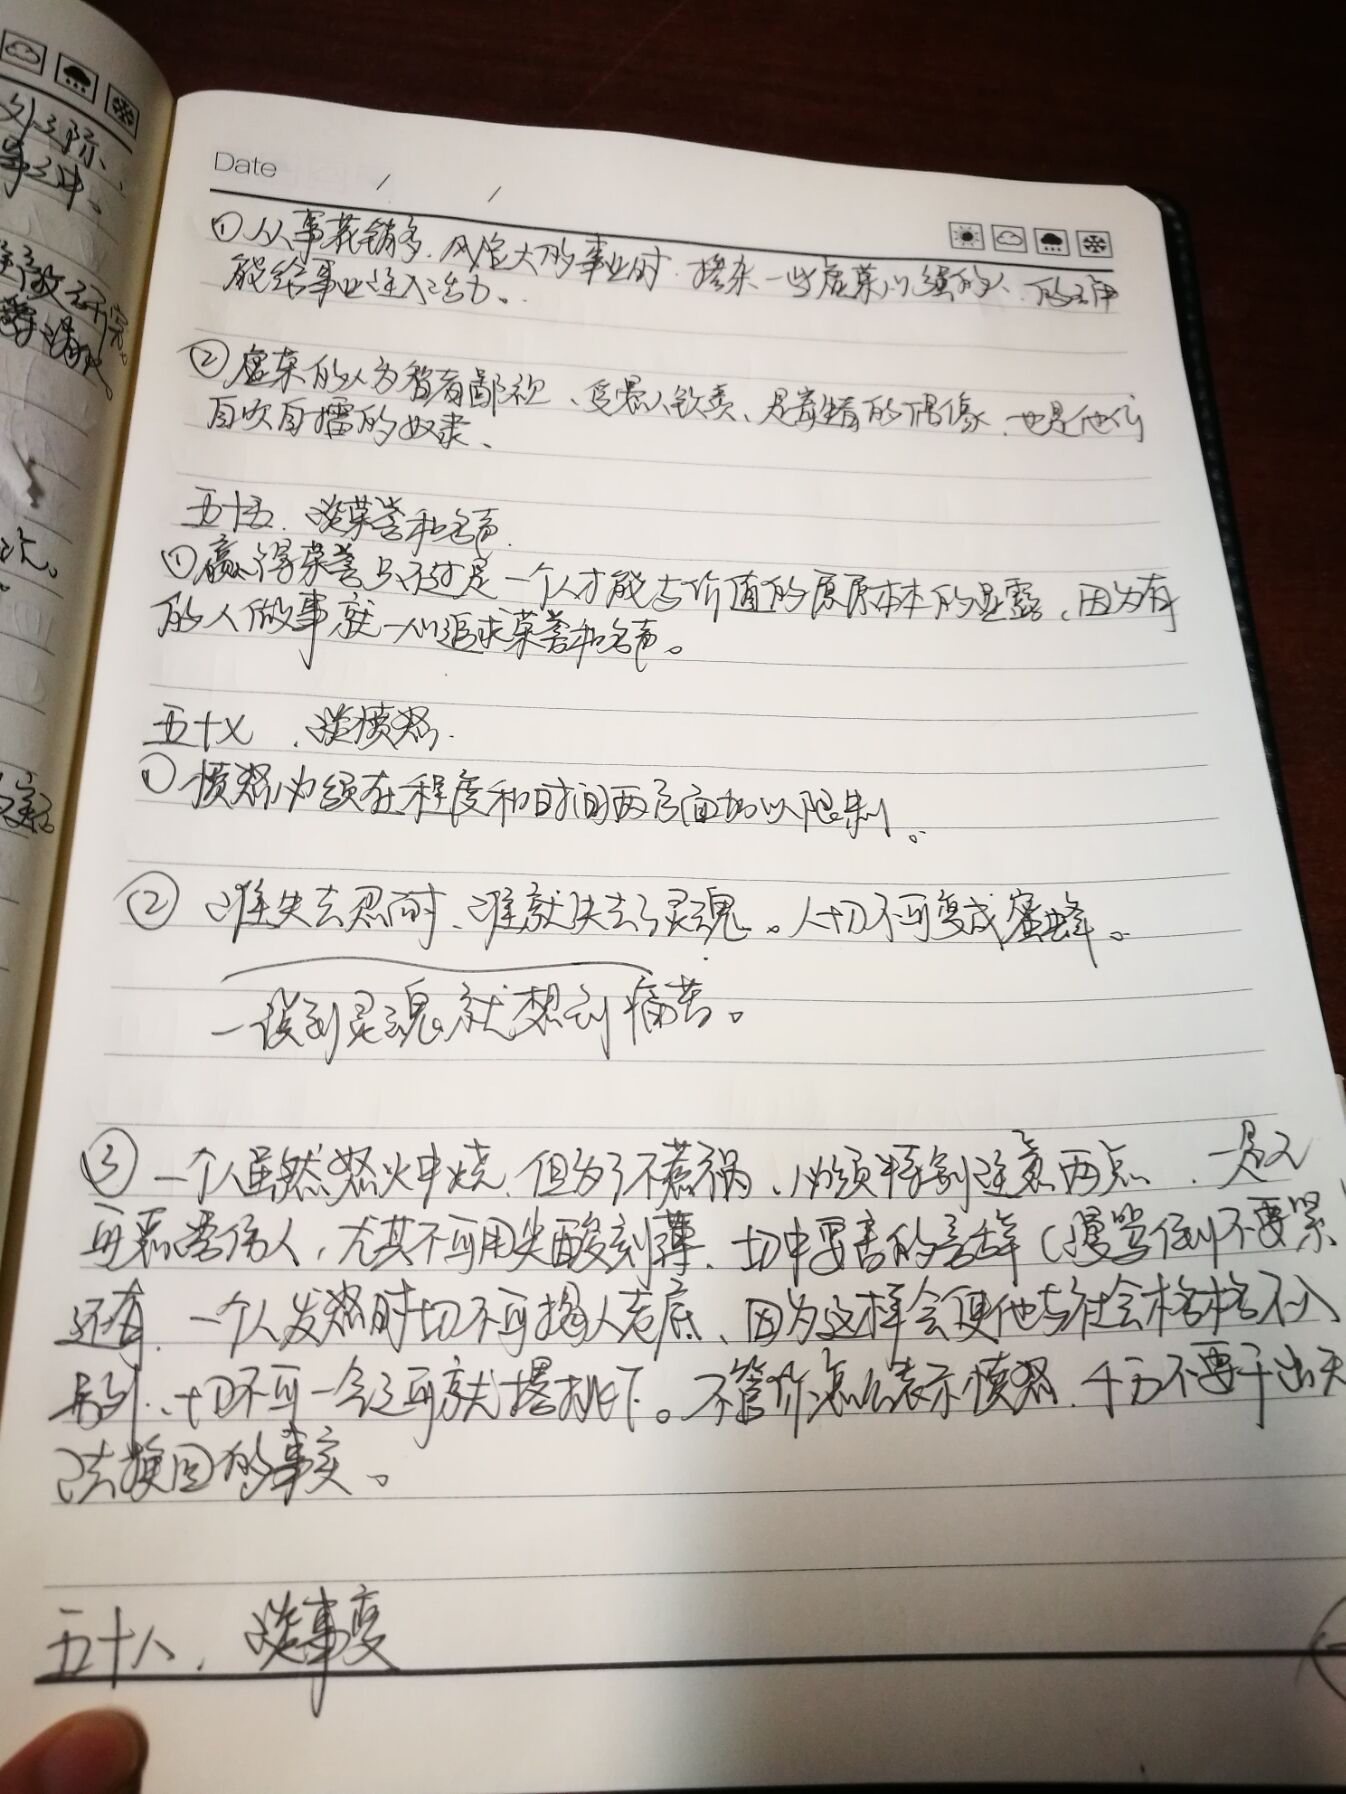 外之际、
事之中。
Date / /
①从事花销多、风险大的事业时，掺杂一些虚荣心强的人，的确
能给事业注入活力。
②虚荣的人为智者鄙视、受愚人钦羡、是寄生者的偶像、也是他们
自吹自擂的奴隶、
五十五、谈荣誉和名声
①赢得荣誉只不过是一个人才能与价值的原原本本的显露、因为有
的人做事就一心追求荣誉和名声。
五十七、谈愤怒.
①愤怒必须在程度和时间两方面加以限制。
② 谁失去忍耐、谁就失去了灵魂。人切不可变成蜜蜂。
一谈到灵魂就想到痛苦。
③一个人虽然怒火中烧、但为了不惹祸、必须特别注意两点、一是不
可恶语伤人，尤其不可用尖酸刻薄、切中要害的言辞(谩骂倒不要紧
还有、一个人发怒时切不可揭人老底、因为这样会使他与社会格格不入
另外、切不可一气之下就撂挑子。不管你怎么表示愤怒、千万不要干出无
法挽回的事变。
五十八、谈事变